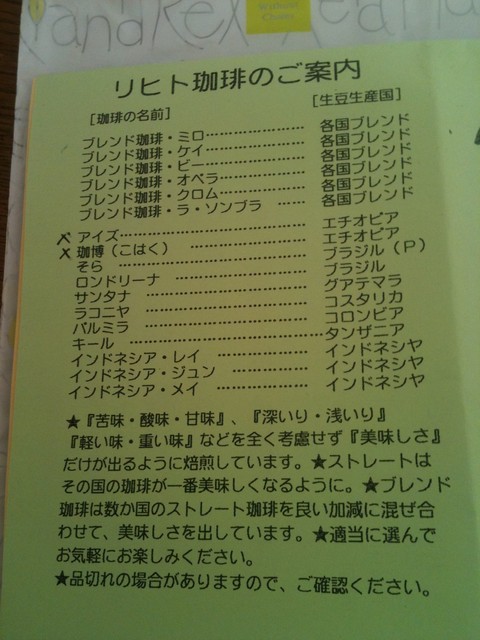 Without
リヒト珈琲のご案内
[珈琲の名前] [生豆生産国]
ブレンド珈琲・ミロ…………………… 各国ブレンド
ブレンド珈琲・ケイ…………………… 各国ブレンド
ブレンド珈琲・ビー…………………… 各国ブレンド
ブレンド珈琲・オペラ………………… 各国ブレンド
ブレンド珈琲・クロム………………… 各国ブレンド
ブレンド珈琲・ラ・ソンブラ …… 各国ブレンド
アイズ…………………………………… エチオピア
珈博（こはく）………………………… エチオピア
そら …………………………………… ブラジル（P）
ロンドリーナ ………………………… ブラジル
サンタナ ……………………………… グアテマラ
ラコニヤ ……………………………… コスタリカ
パルミラ ……………………………… コロンビア
キール …………………………………タンザニア
インドネシア・レイ ………………… インドネシヤ
インドネシア・ジュン ……………… インドネシヤ
インドネシア・メイ ………………… インドネシヤ
★『苦味・酸味・甘味』、『深いり・浅いり』
『軽い味・重い味』などを全く考慮せず『美味しさ』
だけが出るように焙煎しています。★ストレートは
その国の珈琲が一番美味しくなるように。★ブレンド
珈琲は数か国のストレート珈琲を良い加減に混ぜ合
わせて、美味しさを出しています。★適当に選んで
お気軽にお楽しみください。
★品切れの場合がありますので、ご確認ください。